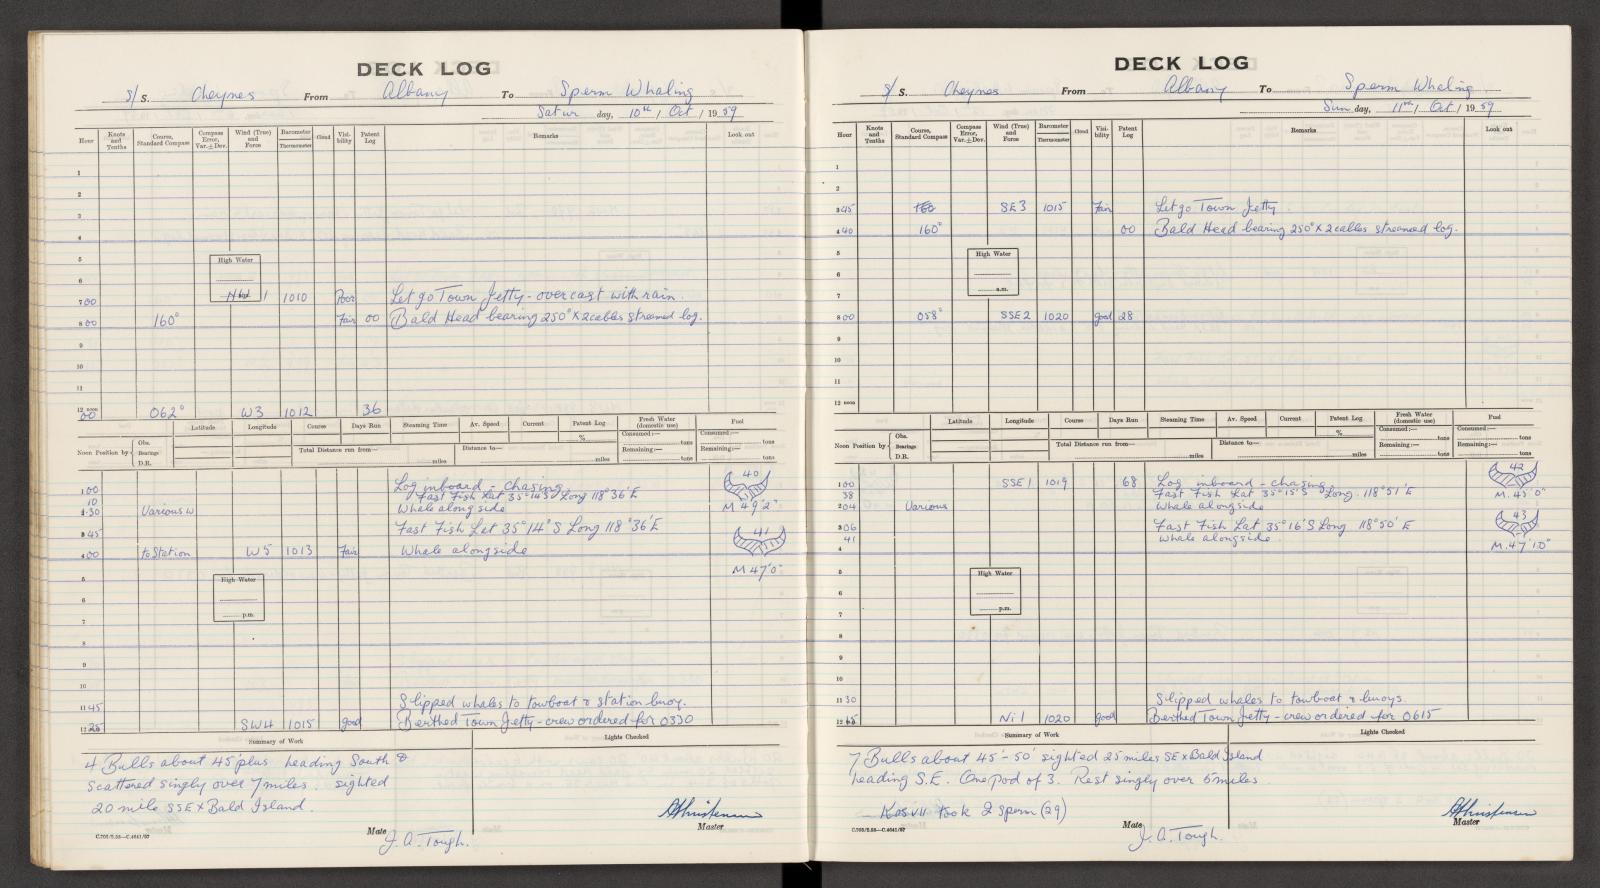 DECK LOG
S/ S. Cheynes From Albany To Sperm Whaling
Satur day, 10th / Oct / 19 59
Hour Knots and Tenths Course, Standard Compass Compass Error, Var.±Dev. Wind (True) and Force Barometer Thermometer Cloud Visibility Patent Log Remarks Look out
1
2
3
4
5
High Water
6
7 00 1 1010 Poor Let go Town Jetty - overcast with rain.
8 00 160° Fair 00 Bald Head bearing 250° x 2 cables streamed log.
9
10
11
12 noon 00 062° W3 1012 36
Latitude Longitude Course Days Run Steaming Time Av. Speed Current Patent Log Fresh Water (domestic use) Fuel
% Consumed:— tons Consumed:— tons
Noon Position by Obs. Bearings D.R. Total Distance run from— miles Distance to— miles Remaining:— tons Remaining:— tons
1 00 Log inboard - chasing 40
10 Fast Fish Lat 35°14'S Long 118°36'E
30 Various w Whale alongside M 49'2"
3 45 Fast Fish Lat 35°14'S Long 118°36'E 41
4 00 to Station W5 1013 Fair Whale alongside
M 47'0"
5
High Water
6
p.m.
7
8
9
10
11 45 Slipped whales to towboat & station buoy.
12 25 SW4 1015 good Berthed Town Jetty - crew ordered for 0330
Summary of Work
Lights Checked
4 Bulls about 45' plus heading South &
scattered singly over 7 miles. sighted
20 mile SSE x Bald Island.
Mate J. A. Tough.
Master
C.705/5.58—C.4641/57
DECK LOG
S/ S. Cheynes From Albany To Sperm Whaling
Sun day, 11th / Oct / 19 59
Hour Knots and Tenths Course, Standard Compass Compass Error, Var.±Dev. Wind (True) and Force Barometer Thermometer Cloud Visibility Patent Log Remarks Look out
1
2
3 45 160 SE3 1015 Fair Let go Town Jetty.
4 40 160° 00 Bald Head bearing 250° x 2 cables streamed log.
5
High Water
6
a.m.
7
8 00 058° SSE2 1020 good 28
9
10
11
12 noon
Latitude Longitude Course Days Run Steaming Time Av. Speed Current Patent Log Fresh Water (domestic use) Fuel
% Consumed:— tons Consumed:— tons
Noon Position by Obs. Bearings D.R. Total Distance run from— miles Distance to— miles Remaining:— tons Remaining:— tons
1 00 SSE1 1019 68 Log inboard - chasing 42
38 Fast Fish Lat 35°15'S Long. 118°51'E M. 45'0"
2 04 Various Whale alongside
3 06 Fast Fish Lat 35°16'S Long 118°50'E 43
41 Whale alongside.
4 M. 47'10"
5
High Water
6
p.m.
7
8
9
10
11 30 Slipped whales to towboat & buoys.
12 15 Ni1 1020 good Berthed Town Jetty - crew ordered for 0615
Summary of Work
Lights Checked
7 Bulls about 45'-50' sighted 25 miles SE x Bald Island
heading S.E. One pod of 3. Rest singly over 5 miles
Kos VII took 2 sperm (29)
Mate J. A. Tough.
Master
C.705/5.58—C.4641/57